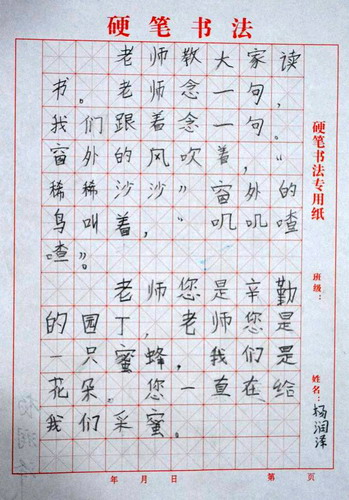 硬笔书法
老师教大家读
书。老师念一句，
我们跟着念一句。
窗外的风吹着，“
稀稀沙沙”窗外的
鸟叫着，“叽叽喳
喳”。
老师您是辛勤
的园丁，老师您是
一只蜜蜂，我们是
花朵。您一直在给
我们采蜜。
硬笔书法专用纸
班级：
姓名：杨润泽
年 月 日 第 页